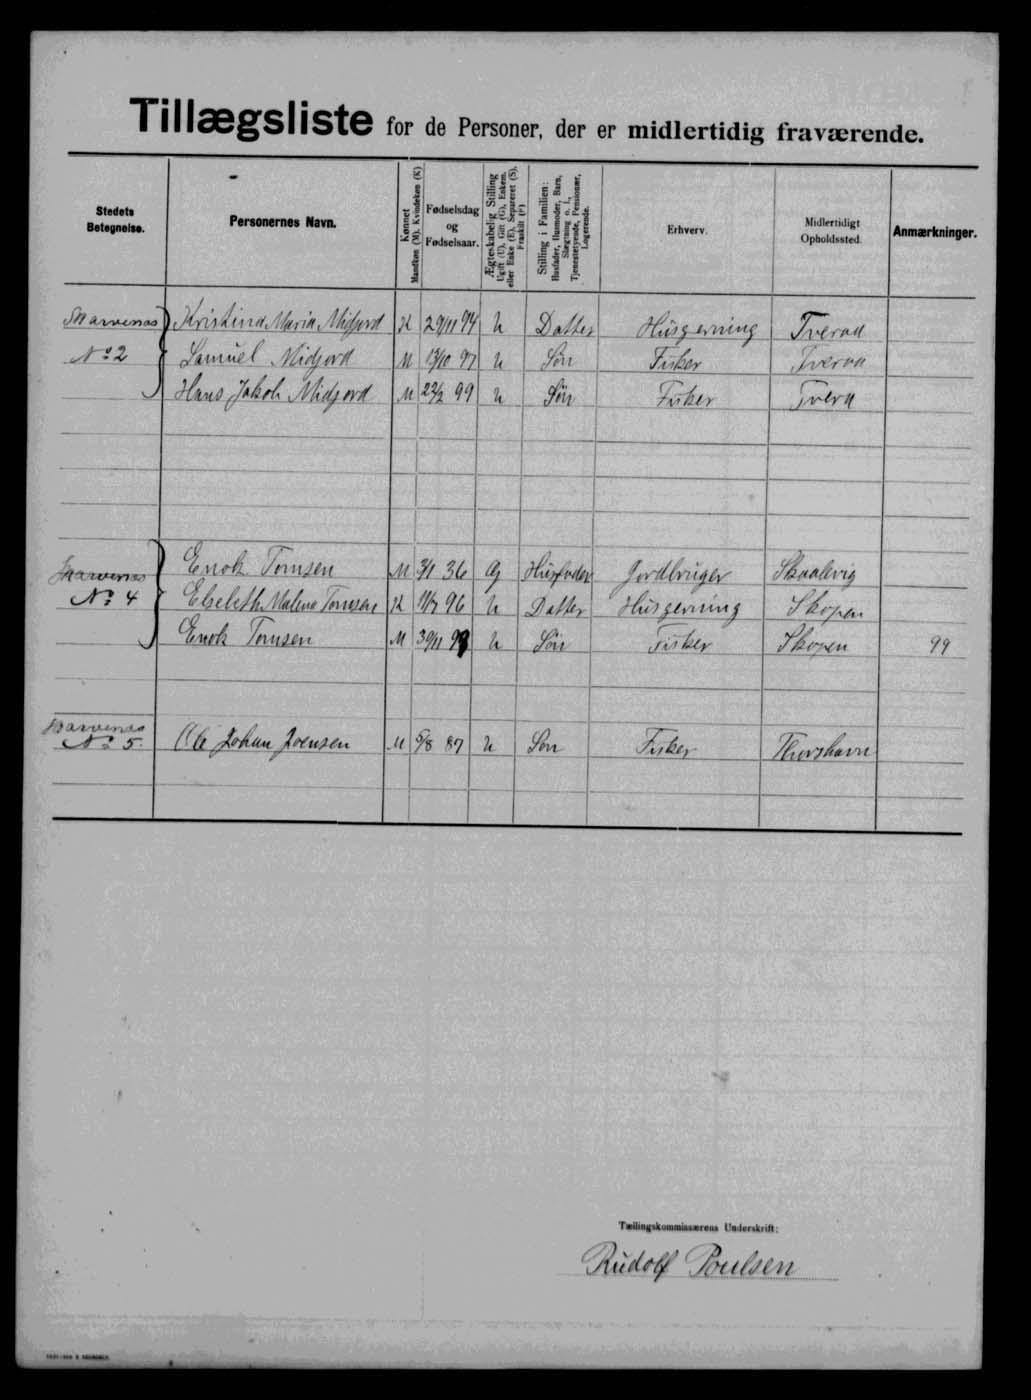 Tillægsliste for de Personer, der er midlertidig fraværende.
Stedets Betegnelse.
Personernes Navn.
Kønnet Mandkøn (M). Kvindekøn (K)
Fødselsdag og Fødselsaar.
Ægteskabelig Stilling Ugift (U), Gift (G), Enkem. eller Enke (E), Separeret (S), Fraskilt (F)
Stilling i Familien: Husfader, Husmoder, Barn, Slægtning o. l., Tjenestetyende, Pensionær, Logerende.
Erhverv.
Midlertidigt Opholdssted.
Anmærkninger.
Skarvenæs Kristina Maria Midjord K 29/11 94 U Datter Husgerning Tveraa
No 2 Samuel Midjord M 13/10 97 U Sön Fisker Tveraa
Hans Jakob Midjord M 22/2 99 U Sön Fisker Tvera
Skarvenæs Enok Tomsen M 3/1 36 G Husfader Jordbruger Skaalevig
No 4 Elsebeth Malena Tomsen K 11/7 96 U Datter Husgerning Skopen
Enok Tomsen M 30/11 99 U Sön Fisker Skopen 99
Skarvenæs
No 5. Ole Johan Joensen M 5/8 87 U Son Fisker Thorshavn
Tællingskommissærens Underskrift:
Rudolf Poulsen